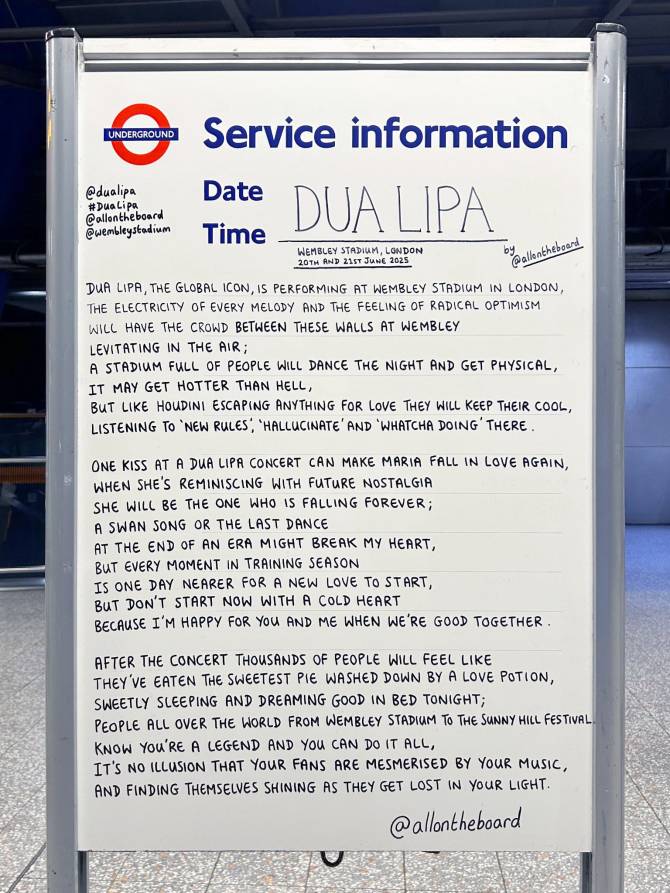 UNDERGROUND
Service information
@dualipa
#DuaLipa
@allontheboard
@wembleystadium
Date
Time
DUA LIPA
WEMBLEY STADIUM, LONDON
20TH AND 21ST JUNE 2025
by @allontheboard
DUA LIPA, THE GLOBAL ICON, IS PERFORMING AT WEMBLEY STADIUM IN LONDON,
THE ELECTRICITY OF EVERY MELODY AND THE FEELING OF RADICAL OPTIMISM
WILL HAVE THE CROWD BETWEEN THESE WALLS AT WEMBLEY
LEVITATING IN THE AIR;
A STADIUM FULL OF PEOPLE WILL DANCE THE NIGHT AND GET PHYSICAL,
IT MAY GET HOTTER THAN HELL,
BUT LIKE HOUDINI ESCAPING ANYTHING FOR LOVE THEY WILL KEEP THEIR COOL,
LISTENING TO 'NEW RULES', 'HALLUCINATE' AND 'WHATCHA DOING' THERE.
ONE KISS AT A DUA LIPA CONCERT CAN MAKE MARIA FALL IN LOVE AGAIN,
WHEN SHE'S REMINISCING WITH FUTURE NOSTALGIA
SHE WILL BE THE ONE WHO IS FALLING FOREVER;
A SWAN SONG OR THE LAST DANCE
AT THE END OF AN ERA MIGHT BREAK MY HEART,
BUT EVERY MOMENT IN TRAINING SEASON
IS ONE DAY NEARER FOR A NEW LOVE TO START,
BUT DON'T START NOW WITH A COLD HEART
BECAUSE I'M HAPPY FOR YOU AND ME WHEN WE'RE GOOD TOGETHER.
AFTER THE CONCERT THOUSANDS OF PEOPLE WILL FEEL LIKE
THEY'VE EATEN THE SWEETEST PIE WASHED DOWN BY A LOVE POTION,
SWEETLY SLEEPING AND DREAMING GOOD IN BED TONIGHT;
PEOPLE ALL OVER THE WORLD FROM WEMBLEY STADIUM TO THE SUNNY HILL FESTIVAL
KNOW YOU'RE A LEGEND AND YOU CAN DO IT ALL,
IT'S NO ILLUSION THAT YOUR FANS ARE MESMERISED BY YOUR MUSIC,
AND FINDING THEMSELVES SHINING AS THEY GET LOST IN YOUR LIGHT.
@allontheboard